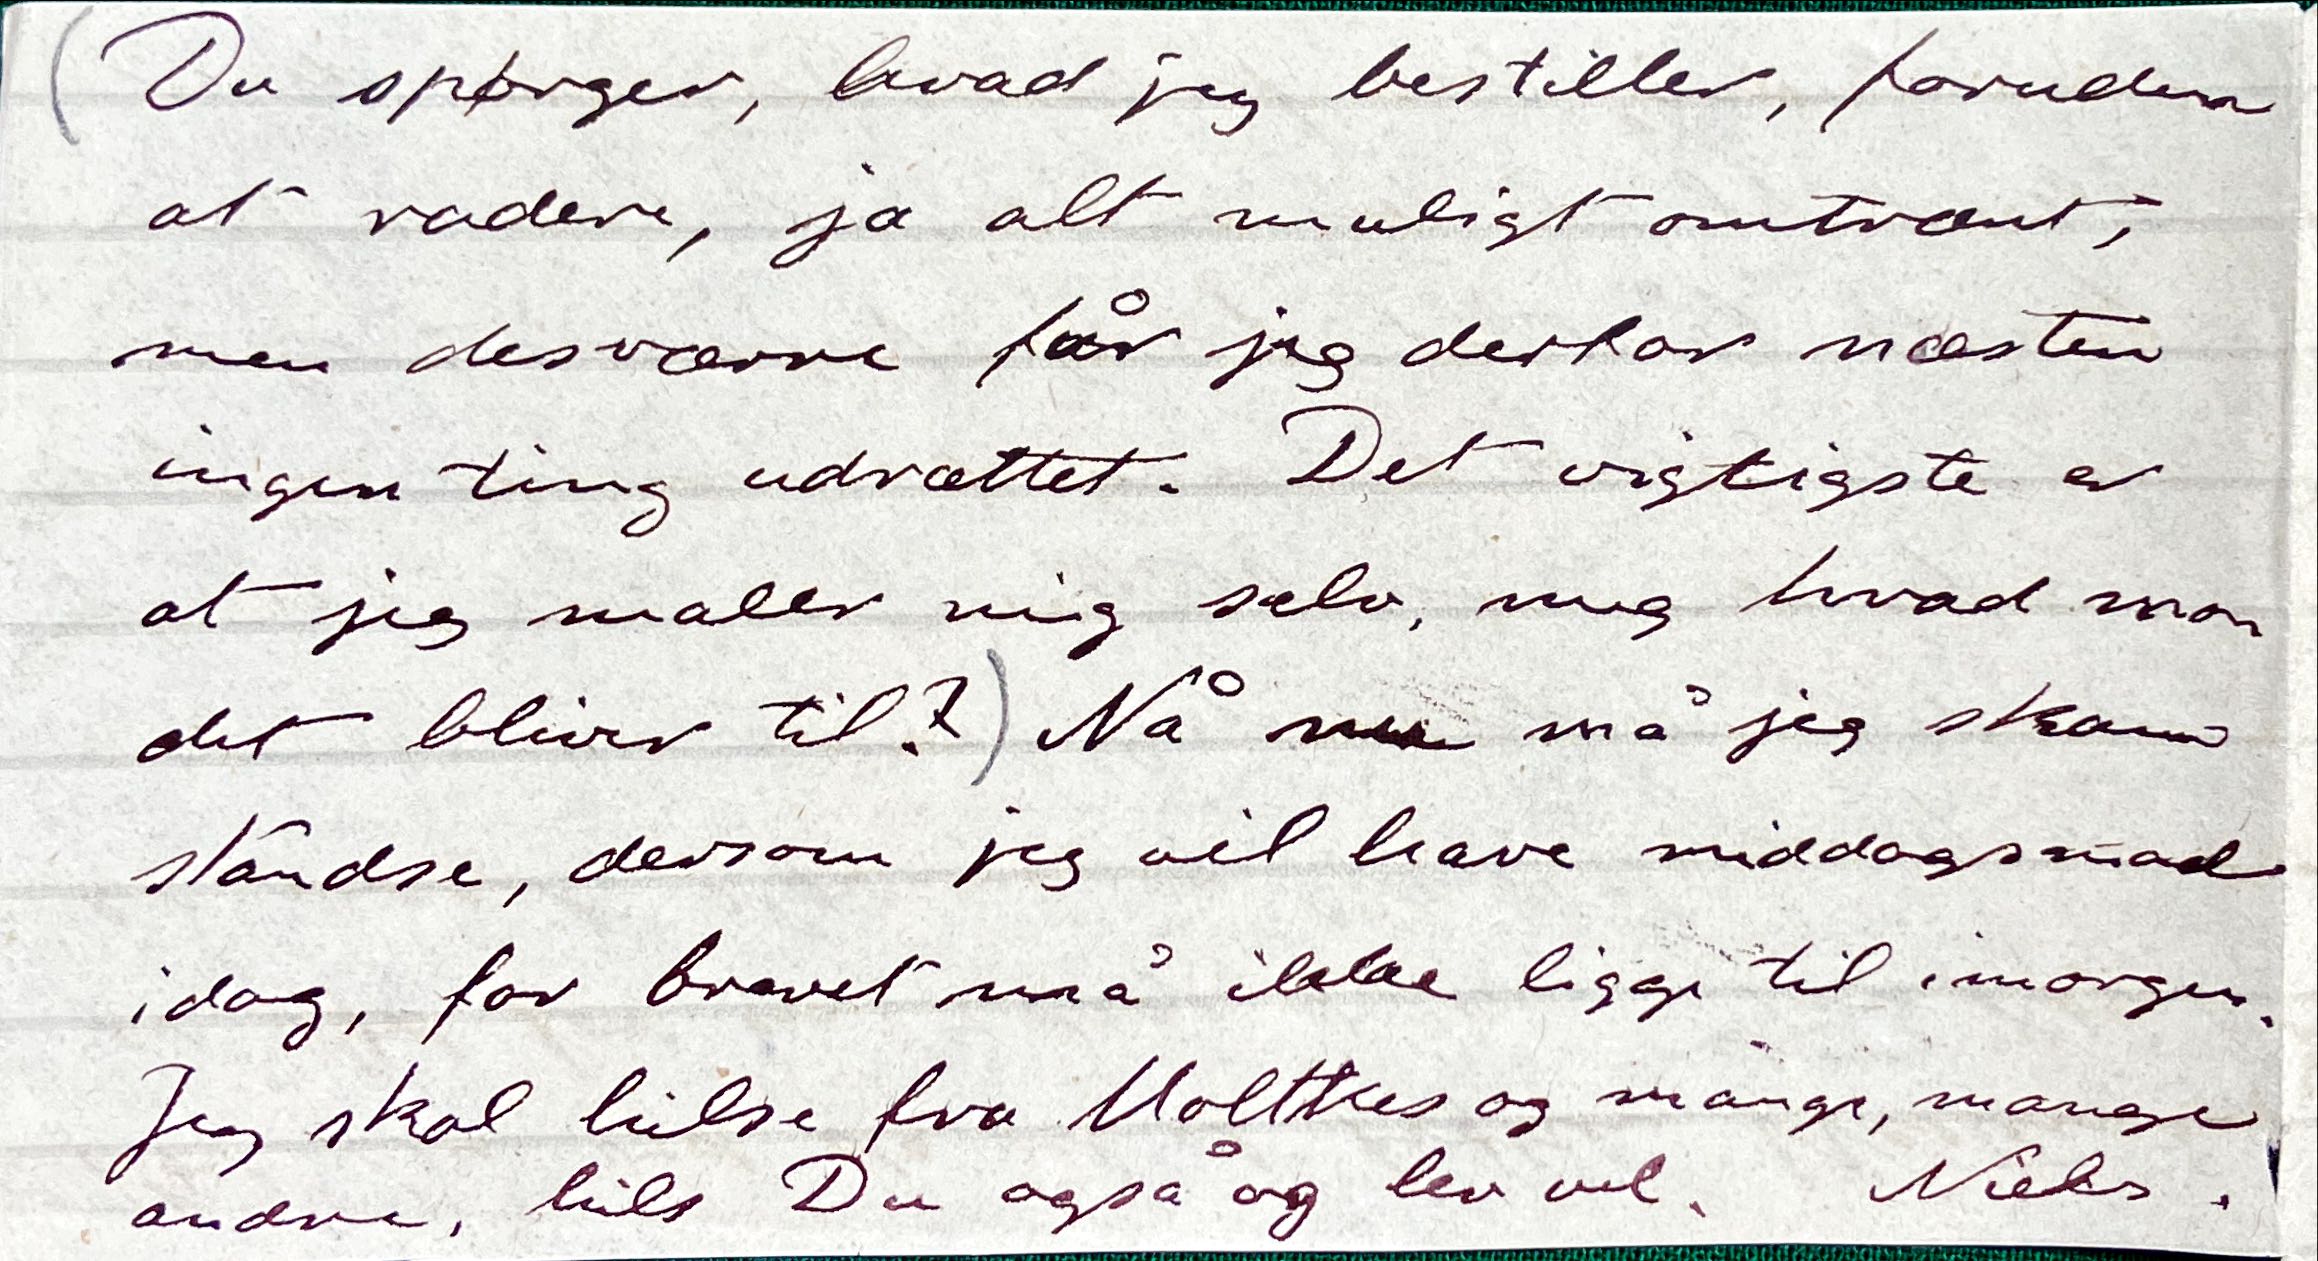 (Du spørger, hvad jeg bestiller, foruden
at radere, ja alt muligt omtrænt,
men desværre får jeg derfor næsten
ingen ting udrættet. Det vigtigste er
at jeg maler mig selv, mug hvad mon
det bliver til?) Nå nu må jeg skam
standse, dersom jeg vil have middagsmad
idag, for brevet må ikke ligge til imorgen.
Jeg skal hilse fra Moltkes og mange, mange
andre, hils Du også og lev vel. Niels.